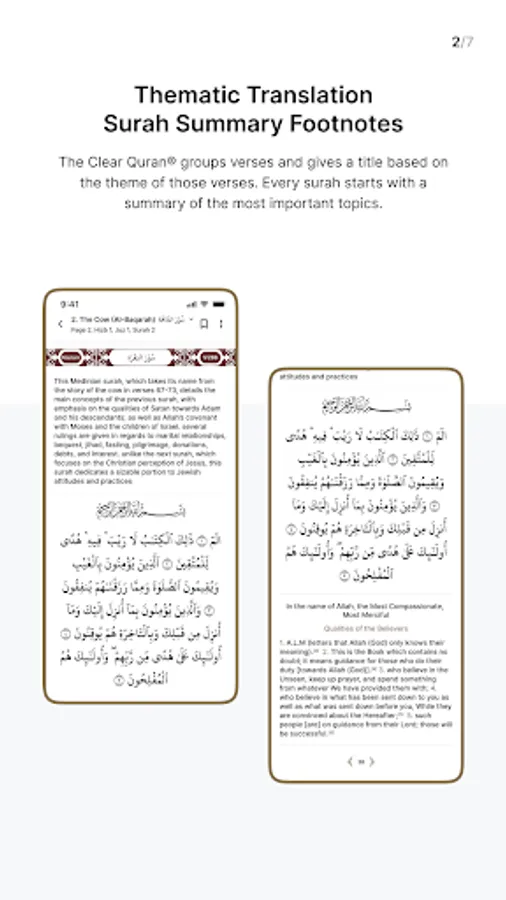 2/7
Thematic Translation
Surah Summary Footnotes
The Clear Quran® groups verses and gives a title based on
the theme of those verses. Every surah starts with a
summary of the most important topics.
9:41
2. The Cow (Al-Baqarah)
Page 2, Hizb 1, Juz 1, Surah 2
سُورَةُ البَقَرَة
This Medinian surah, which takes its name from
the story of the cow in verses 67-73, details the
main concepts of the previous surah, with
emphasis on the qualities of Satan towards Adam
and his descendants; as well as Allah's covenant
with Moses and the children of Israel. several
rulings are given in regards to marital relationships,
bequest, jihad, fasting, pilgrimage, donations,
debts, and interest. unlike the next surah, which
focuses on the Christian perception of Jesus, this
surah dedicates a sizable portion to Jewish
attitudes and practices
الٓمٓ ١ ذَٰلِكَ ٱلْكِتَٰبُ لَا رَيْبَ ۛ فِيهِ ۛ هُدًى
لِّلْمُتَّقِينَ ٢ ٱلَّذِينَ يُؤْمِنُونَ بِٱلْغَيْبِ
وَيُقِيمُونَ ٱلصَّلَوٰةَ وَمِمَّا رَزَقْنَٰهُمْ يُنفِقُونَ
٣ وَٱلَّذِينَ يُؤْمِنُونَ بِمَآ أُنزِلَ إِلَيْكَ وَمَآ
أُنزِلَ مِن قَبْلِكَ وَبِٱلْـَٔاخِرَةِ هُمْ يُوقِنُونَ ٤
أُو۟لَٰٓئِكَ عَلَىٰ هُدًى مِّن رَّبِّهِمْ ۖ وَأُو۟لَٰٓئِكَ هُمُ
ٱلْمُفْلِحُونَ ٥
attitudes and practices
الٓمٓ ١ ذَٰلِكَ ٱلْكِتَٰبُ لَا رَيْبَ ۛ فِيهِ ۛ هُدًى
لِّلْمُتَّقِينَ ٢ ٱلَّذِينَ يُؤْمِنُونَ بِٱلْغَيْبِ
وَيُقِيمُونَ ٱلصَّلَوٰةَ وَمِمَّا رَزَقْنَٰهُمْ يُنفِقُونَ
٣ وَٱلَّذِينَ يُؤْمِنُونَ بِمَآ أُنزِلَ إِلَيْكَ وَمَآ
أُنزِلَ مِن قَبْلِكَ وَبِٱلْـَٔاخِرَةِ هُمْ يُوقِنُونَ ٤
أُو۟لَٰٓئِكَ عَلَىٰ هُدًى مِّن رَّبِّهِمْ ۖ وَأُو۟لَٰٓئِكَ هُمُ
ٱلْمُفْلِحُونَ ٥
In the name of Allah, the Most Compassionate,
Most Merciful
Qualities of the Believers
1. A.L.M (letters that Allah (God) only knows their
meaning). 2. This is the Book which contains no
doubt; it means guidance for those who do their
duty [towards Allah (God)]. 3. who believe in the
Unseen, keep up prayer, and spend something
from whatever We have provided them with; 4.
who believe in what has been sent down to you as
well as what was sent down before you, While they
are convinced about the Hereafter; 5. such
people [are] on guidance from their Lord; those will
be successful.